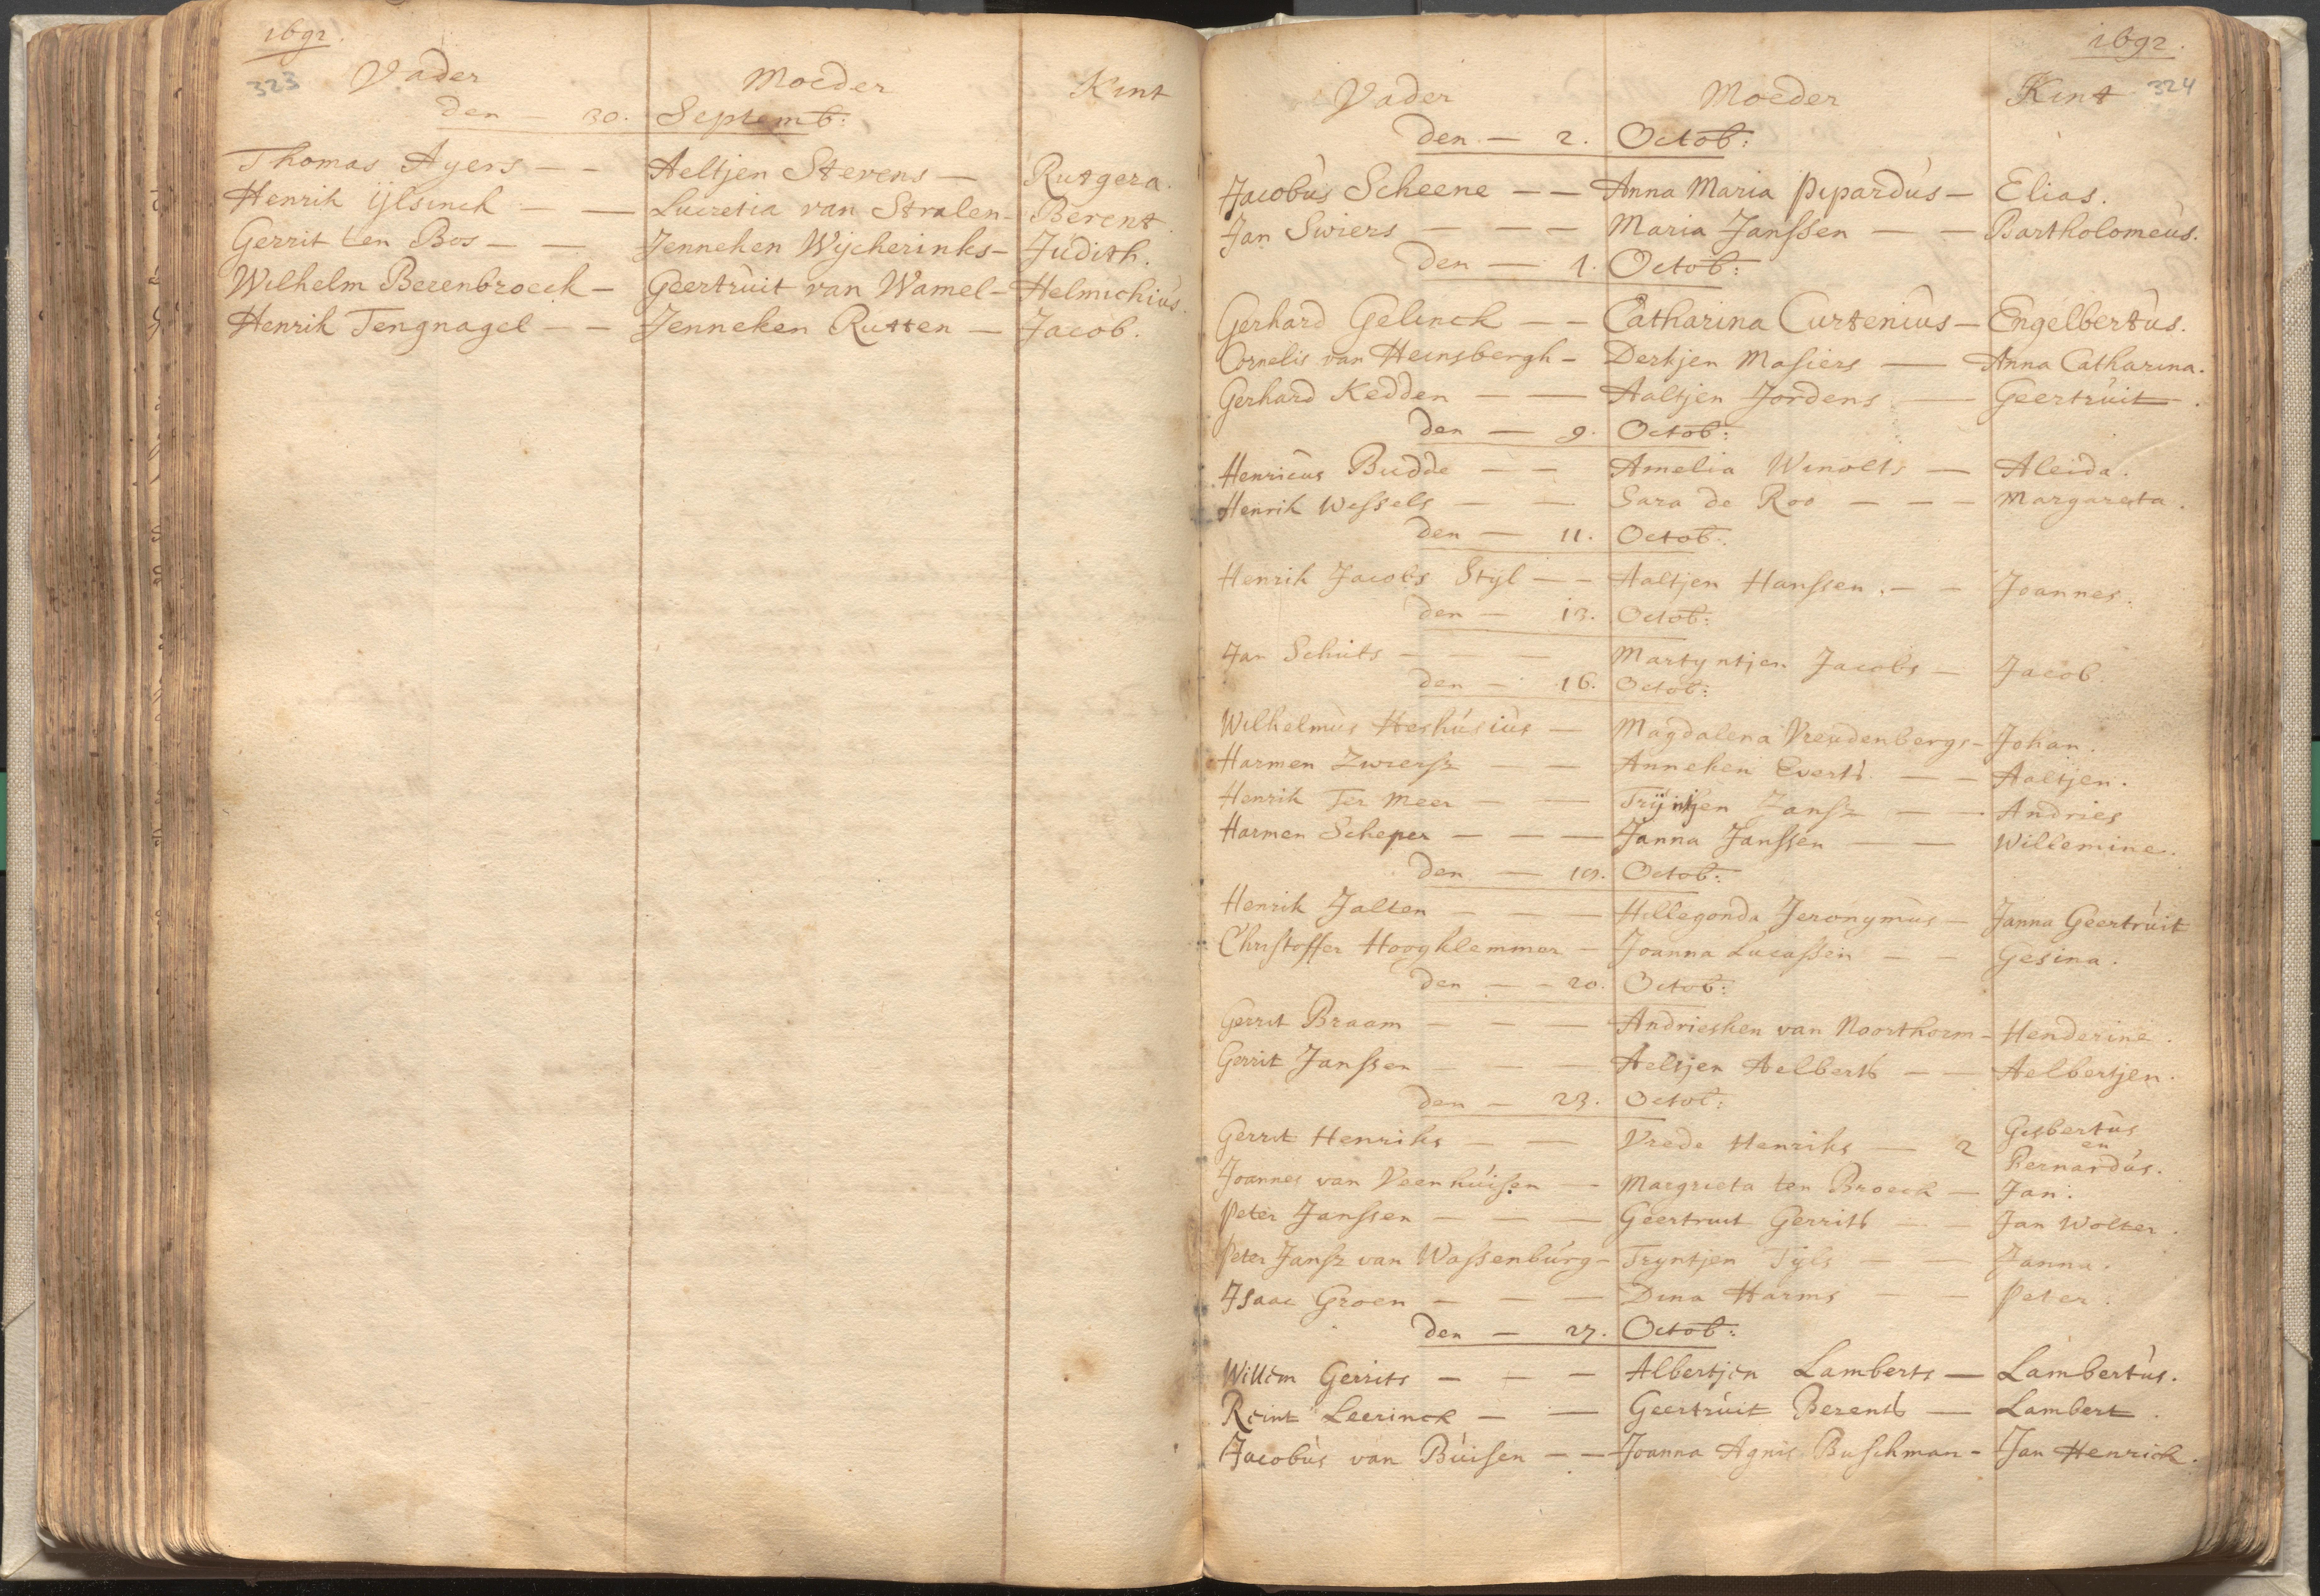 1692.
323
Vader Moeder Kint
den — 30. Septemb:
Thomas Ayers — — Aeltjen Stevens — Rutgera.
Henrik Ijlsinck — — Lucretia van Stralen — Berent.
Gerrit ten Bos — — Jenneken Wijcherinks — Judith.
Wilhelm Berenbroeck — Geertruit van Wamel — Helmichius.
Henrik Tengnagel — — Jenneken Rutten — Jacob.
1692.
324
Vader Moeder Kint
den — 2. Octob:
Jacobus Scheene — — Anna Maria Pipardus — Elias.
Jan Swiers — — — Maria Janssen — — Bartholomeus.
den — Octob:
Gerhard Gelinck — — Catharina Curtenius — Engelbertus.
Cornelis van Heinsbergh — Derkjen Masiers — Anna Catharina.
Gerhard Kedden — — Aaltjen Jordens — Geertruit.
den — 9. Octob:
Henricus Budde — — Amelia Winolts — Aleida.
Henrik Wessels — — Sara de Roo — — — Margareta.
den — 11. Octob:
Henrik Jacobs Stijl — — Aaltjen Hanssen. — — Joannes.
den — 13. Octob:
Jan Schuts — — — Martyntjen Jacobs — Jacob.
den — 16. Octob:
Wilhelmus Heshusius — Magdalena Vreudenbergs — Johan.
Harmen Zwiersz — — Anneken Everts — — Aaltjen.
Henrik Ter Meer — — Trijntjen Jansz — — Andries
Harmen Scheper — — — Janna Janssen — — Willemine.
den — 19. Octob:
Henrik Jalten — — — Hillegonda Jeronymus — Janna Geertruit
Christoffer Hooghlemmer — Joanna Lucassen — — Gesina.
den — — 20. Octob:
Gerrit Braam — — — Andriesken van Noorthorm — Henderine.
Gerrit Janssen — — — Aeltjen Aelberts — — Aelbertjen.
den — 23. Octob:
Gerrit Henriks — — Vrede Henriks — 2 Gisbertus
en
Bernardus.
Joannes van Veenhuisen — Margrieta ten Broeck — Jan.
Peter Janssen — — — Geertruit Gerrits — — Jan Wolter.
Peter Jansz van Wassenburg — Tryntjen Tijls — — Janna.
Isaac Groen — — — Dina Harms — — Peter.
den — 27. Octob:
Willem Gerrits — — — Albertjen Lamberts — Lambertus.
Reint Leerinck — — Geertruit Berents — Lambert.
Jacobus van Buisen — — Joanna Agnis Buschman — Jan Henrick.